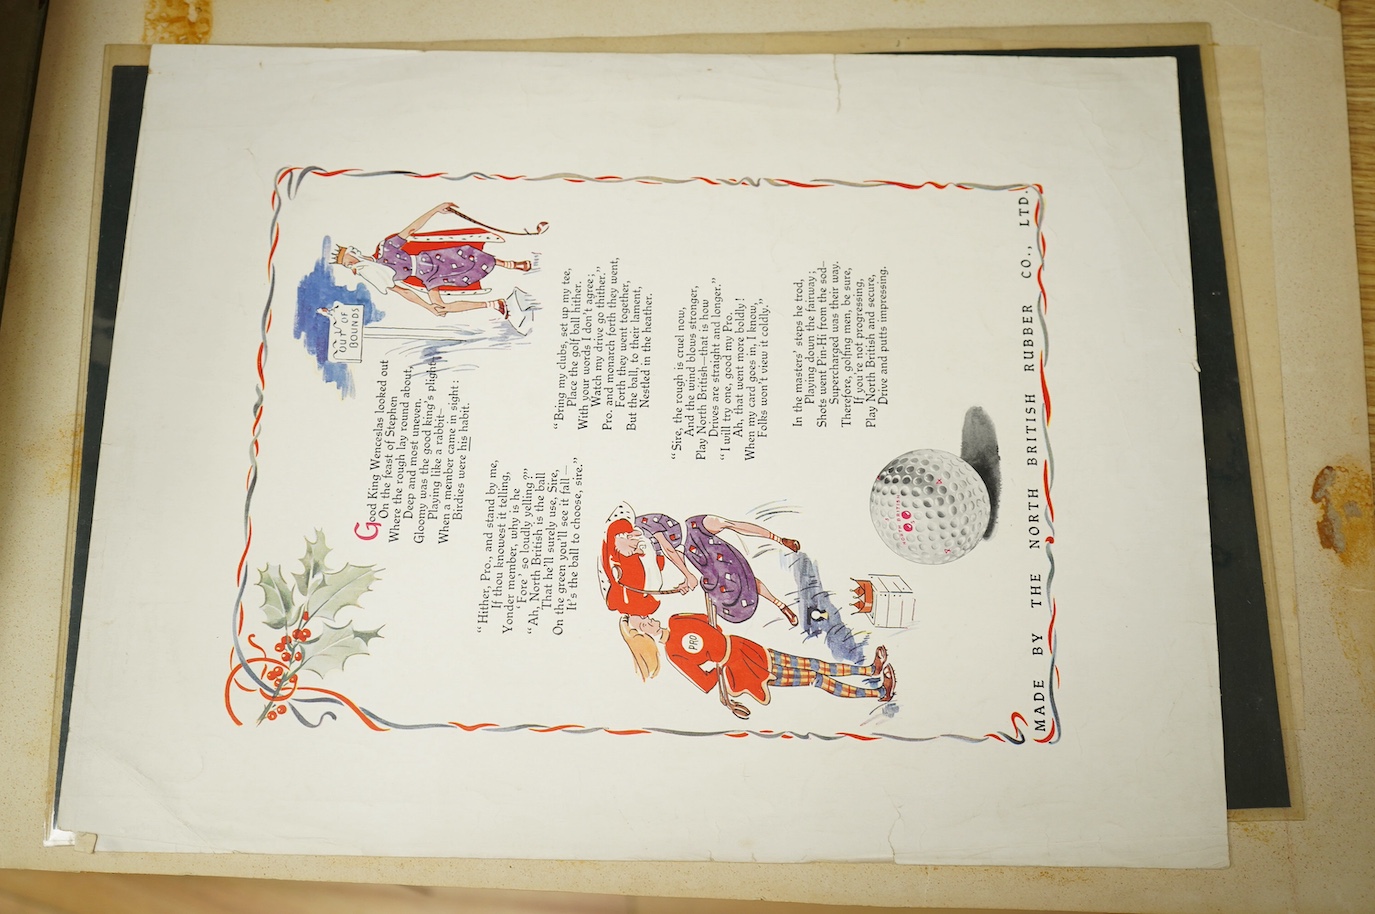 OUT OF
BOUNDS
Good King Wenceslas looked out
On the feast of Stephen
Where the rough lay round about,
Deep and most uneven.
Gloomy was the good king's plight,
Playing like a rabbit—
When a member came in sight:
Birdies were his habit.
"Hither, Pro., and stand by me,
If thou knowest it telling,
Yonder member, why is he
'Fore' so loudly yelling?"
"Ah, North British is the ball
That he'll surely use, Sire,
On the green you'll see it fall—
It's the ball to choose, sire."
"Bring my clubs, set up my tee,
Place the golf ball hither.
With your words I don't agree;
Watch my drive go thither."
Pro. and monarch forth they went,
Forth they went together,
But the ball, to their lament,
Nestled in the heather.
"Sire, the rough is cruel now,
And the wind blows stronger,
Play North British—that is how
Drives are straight and longer."
"I will try one, good my Pro.,
Ah, that went more boldly!
When my card goes in, I know,
Folks won't view it coldly."
In the masters' steps he trod,
Playing down the fairway;
Shots went Pin-Hi from the sod—
Supercharged was their way.
Therefore, golfing men, be sure,
If you're not progressing,
Play North British and secure,
Drive and putts impressing.
PRO
MADE BY THE NORTH BRITISH RUBBER CO., LTD.